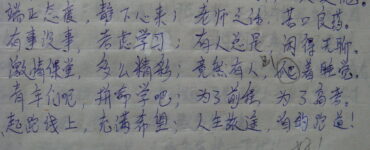 端正态度，静下心来；老师之话，苦口良药。
有事没事，考虑学习；有人总是，闲得无聊。
激情课堂，多么精彩；竟然有人，着睡觉。
有车们吧，拼命学吧；为了前程，为了高考。
起跑线上，充满希望；人生故道，跑道！